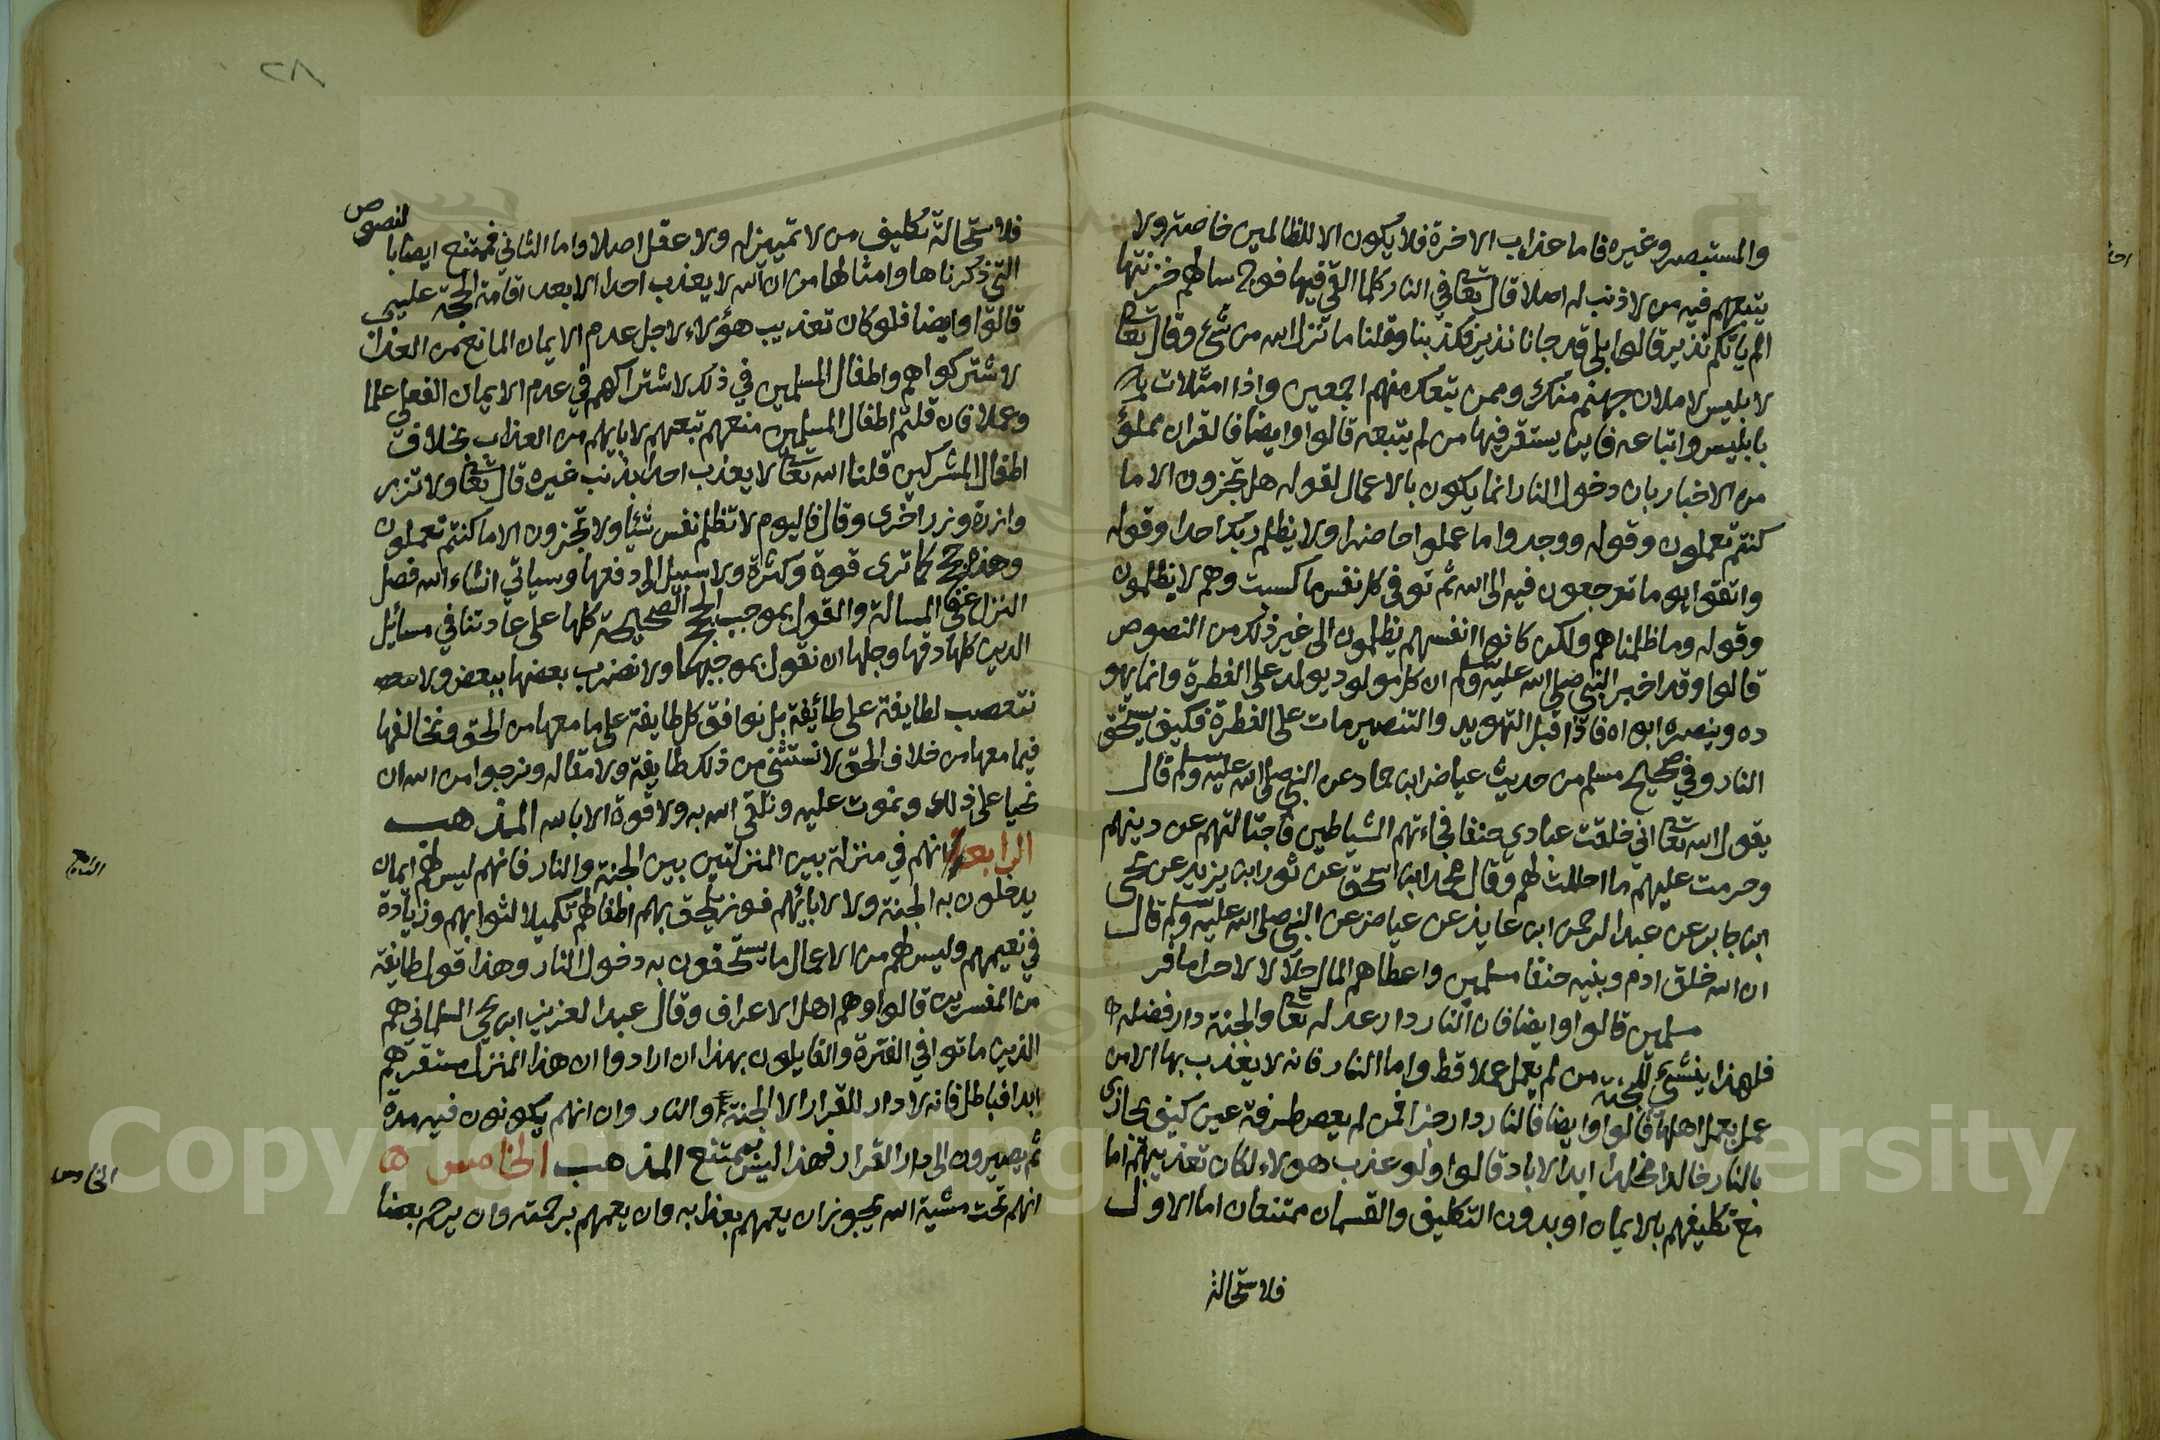 والمستبصر وغيره فاما عذاب الاخرة فلا يكون الا للظالمين خاصة ولا
يتبعهم فيه من لا ذنب له اصلا قال تعا في النار كلما القي فيها فوج سالهم خزنتها
الم ياتكم نذير قالوا بلى قد جانا نذير فكذبنا وقلنا ما نزل الله من شئ وقال تعا
لابليس لاملان جهنم منك وممن تبعك منهم اجمعين واذا امتلات
بابليس واتباعه فاين يستقر فيها من لم يتبعه قالوا وايضا فالقران مملؤ
من الاخبار بان دخول النار انما يكون بالاعمال لقوله هل تجزون الا ما
كنتم تعملون وقوله ووجدوا ما عملوا حاضرا ولا يظلم ربك احدا وقوله
واتقوا يوما ترجعون فيه الى الله ثم توفى كل نفس ما كسبت وهم لا يظلمون
وقوله وما ظلمناهم ولكن كانوا انفسهم يظلمون الى غير ذلك من النصوص
قالوا وقد اخبر النبي صلى الله عليه وسلم ان كل مولود يولد على الفطرة وانما يهو
ده وينصره ابواه فاذا قبل التهويد والتنصير مات على الفطرة فكيف يستحق
النار وفي صحيح مسلم من حديث عياض ابن حماد عن النبي صلى الله عليه وسلم قال
يقول الله تعا اني خلقت عبادي حنفا فجاءتهم الشياطين فاجتالتهم عن دينهم
وحرمت عليهم ما احللت لهم وقال محمد ابن اسحق عن ثور ابن يزيد عن يحيى
ابن جابر عن عبد الرحمن ابن عايذ عن عياض عن النبي صلى الله عليه وسلم قال
ان الله خلق ادم وبنيه حنفا مسلمين واعطاهم المال حلالا لا حراما فر
مسلمين قالوا وايضا فان النار دار عدله تعا والجنة دار فضله
فلهذا ينشئ للجنة من لم يعمل عملا قط واما النار فانه لا يعذب بها الا من
عمل بعمل اهلها قالوا وايضا فالنار دار جزا فمن لم يعص طرفة عين كيف يجازى
بالنار خالدا مخلدا ابد الاباد قالوا ولو عذب هولاء لكان تعذيبهم اما
مع تكليفهم بالايمان او بدون التكليف والقسمان ممتنعان اما الاول
فلاستحالة
٢٨
فلاستحالة تكليف من لا تمييز له ولا عقل اصلا واما الثاني فممتنع ايضا با لنصوص
التي ذكرناها وامثالها من ان الله لا يعذب احدا الا بعد اقامة الحجة عليه
قالوا وايضا فلو كان تعذيب هؤلاء لاجل عدم الايمان المانع من العذاب
لاشتركوا هم واطفال المسلمين في ذلك لاشتراكهم في عدم الايمان الفعلي علما
وعملا فان قلتم اطفال المسلمين منعهم تبعهم لابايهم من العذاب بخلاف
اطفال المشركين قلنا الله تعا لا يعذب احدا بذنب غيره قال تعا ولا تزر
وازرة وزر اخرى وقال فاليوم لا تظلم نفس شئيا ولا تجزون الا ما كنتم تعملون
وهذه حجج كما ترى قوة وكثرة ولا سبيل الى دفعها وسياتي انشاء الله فصل
النزاع في المسالة والقول بموجب الحجج الصحيحة كلها على عادتنا في مسائل
الدين كلها دقها وجلها ان نقول بموجبها ولا نضرب بعضها ببعض ولا
نتعصب لطايفة على طائفة بل نوافق كل طايفة على ما معها من الحق ونخالفها
فيما معها من خلاف الحق لا نستثني من ذلك طايفة ولا مقالة ونرجوا من الله ان
نحيا على ذلك ونموت عليه ونلقى الله به ولا قوة الا بالله المذهب
الرابع انهم في منزلة بين المنزلتين بين الجنة والنار فانهم ليس لهم ايمان
يدخلون به الجنة ولا لابائهم فوز يلحق بهم اطفالهم تكميلا لثوابهم وزيادة
في نعيمهم وليس لهم من الاعمال ما يستحقون به دخول النار وهذا قول طايفة
من المفسرين قالوا وهم اهل الاعراف وقال عبد العزيز ابن يحيى الكناني هم
الذين ماتوا في الفترة والقايلون بهذا ان ارادوا ان هذا المنزل مستقرهم
ابدا فباطل فانه لا دار للقرار الا الجنة او النار وان انهم يكونون فيه مدة
ثم يصيرون الى دار القرار فهذا ليس بممتنع المذهب الخامس
انهم تحت مشية الله يجوز ان يعمهم بعذابه وان يعمهم برحمته وان يرحم بعضا
الرابع
الخامس